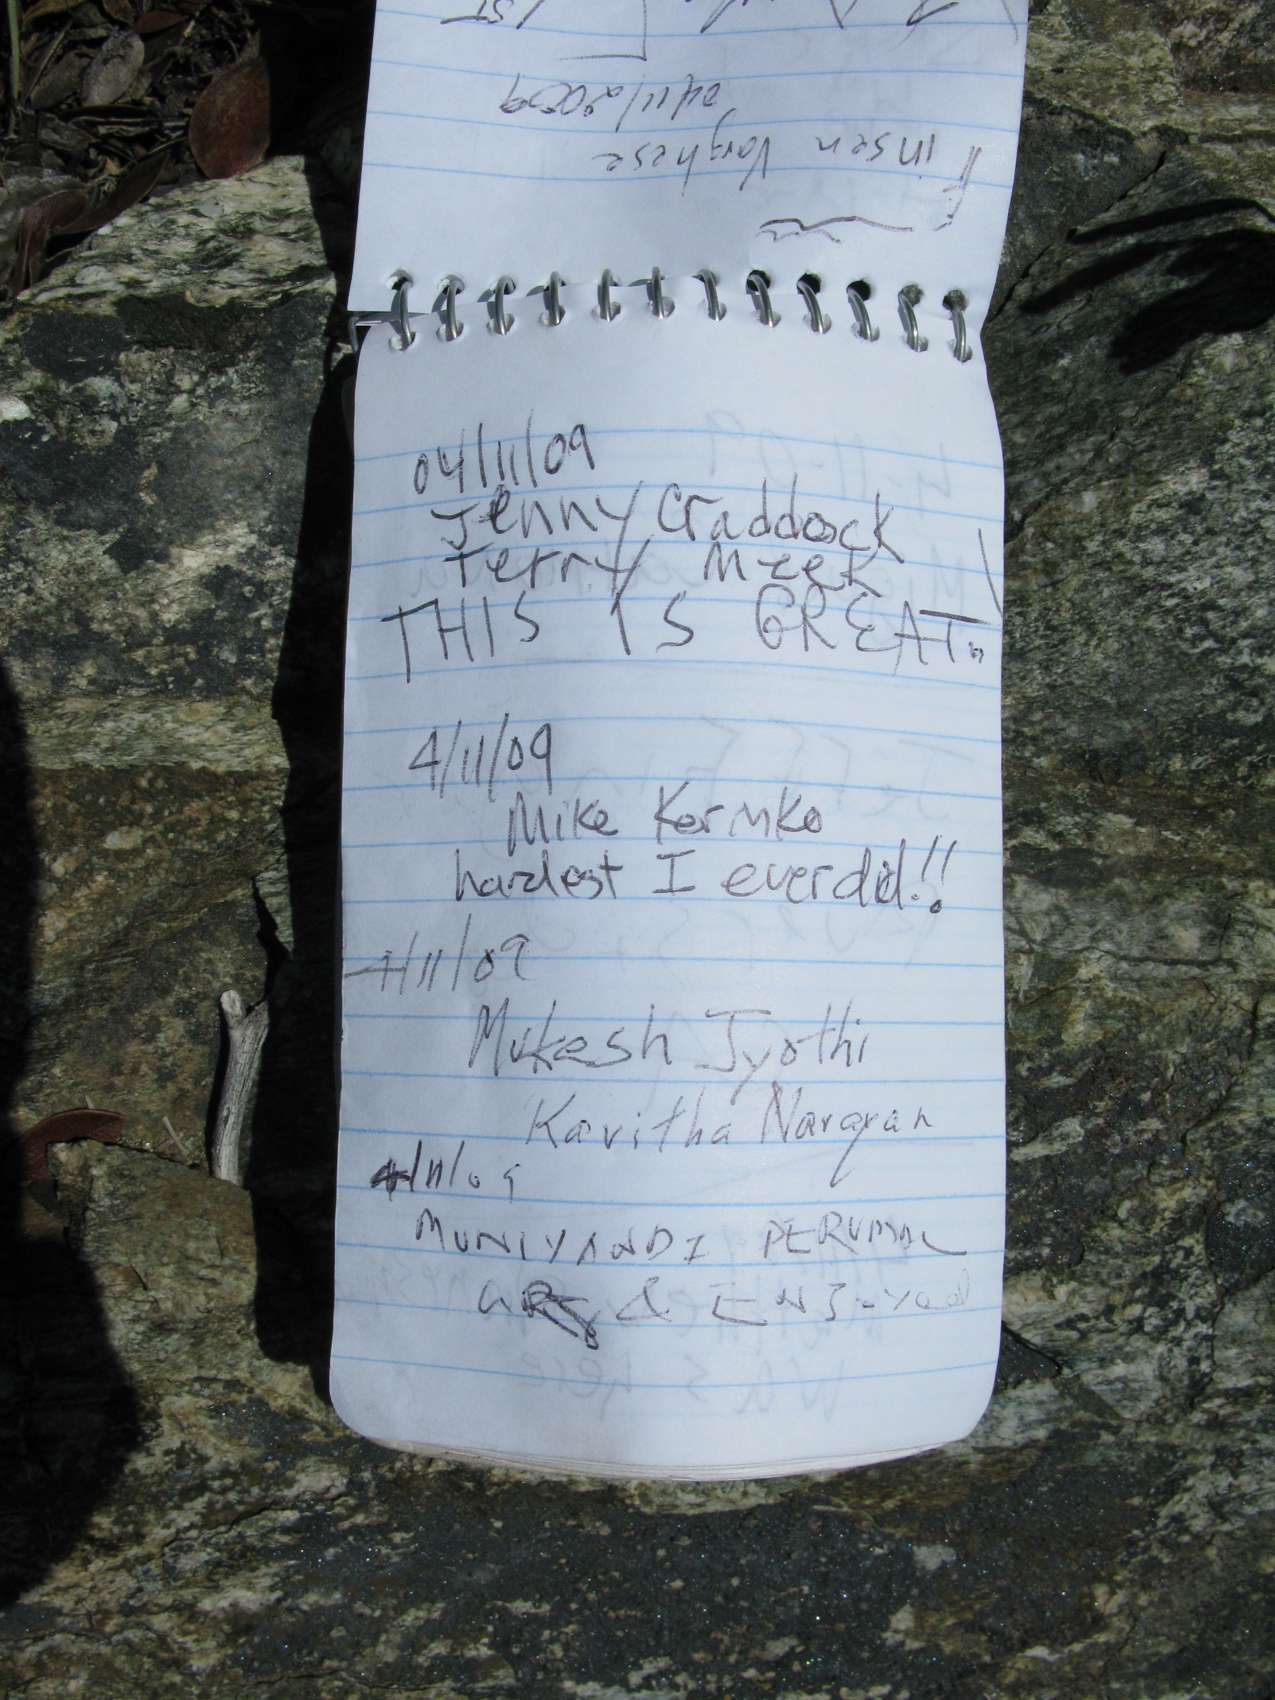 Finsen Varghese
04/11/2009
04/11/09
Jenny Craddock
Terry Meek
THIS IS GREAT!
4/11/09
Mike
hardest I ever did!!
4/11/09
Mukesh Jyothi
Kavitha Narayan
4/11/09
MUNIYANDI PERUMAL
&